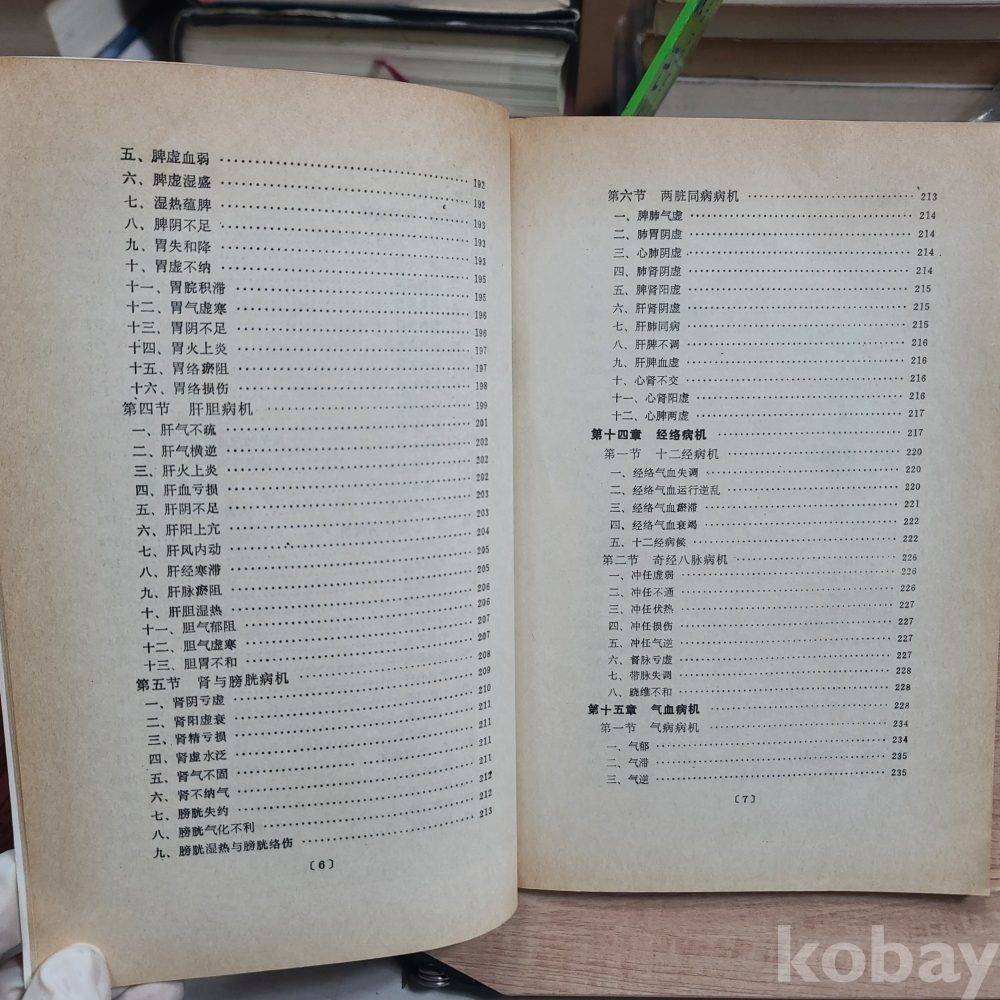 五、脾虚血弱 192
六、脾虚湿盛 192
七、湿热蕴脾 193
八、脾阴不足 193
九、胃失和降 193
十、胃虚不纳 195
十一、胃脘积滞 195
十二、胃气虚寒 196
十三、胃阴不足 196
十四、胃火上炎 197
十五、胃络瘀阻 197
十六、胃络损伤 198
第四节 肝胆病机 199
一、肝气不疏 201
二、肝气横逆 202
三、肝火上炎 202
四、肝血亏损 202
五、肝阴不足 203
六、肝阳上亢 203
七、肝风内动 204
八、肝经寒滞 205
九、肝脉瘀阻 205
十、肝胆湿热 206
十一、胆气郁阻 206
十二、胆气虚寒 207
十三、胆胃不和 207
第五节 肾与膀胱病机 208
一、肾阴亏虚 209
二、肾阳虚衰 210
三、肾精亏损 211
四、肾虚水泛 211
五、肾气不固 211
六、肾不纳气 211
七、膀胱失约 212
八、膀胱气化不利 212
九、膀胱湿热与膀胱络伤 213
〔6〕
第六节 两脏同病病机 213
一、脾肺气虚 214
二、肺胃阴虚 214
三、心肺阴虚 214
四、肺肾阴虚 214
五、脾肾阳虚 215
六、肝肾阴虚 215
七、肝肺同病 215
八、肝脾不调 216
九、肝脾血虚 216
十、心肾不交 216
十一、心肾阳虚 216
十二、心脾两虚 217
第十四章 经络病机 217
第一节 十二经病机 220
一、经络气血失调 220
二、经络气血运行逆乱 220
三、经络气血瘀滞 221
四、经络气血衰竭 222
五、十二经病候 222
第二节 奇经八脉病机 226
一、冲任虚弱 226
二、冲任不通 226
三、冲任伏热 227
四、冲任损伤 227
五、冲任气逆 227
六、督脉亏虚 227
七、带脉失调 228
八、跷维不和 228
第十五章 气血病机 228
第一节 气病病机 234
一、气郁 234
二、气滞 235
三、气逆 235
〔7〕
kobay